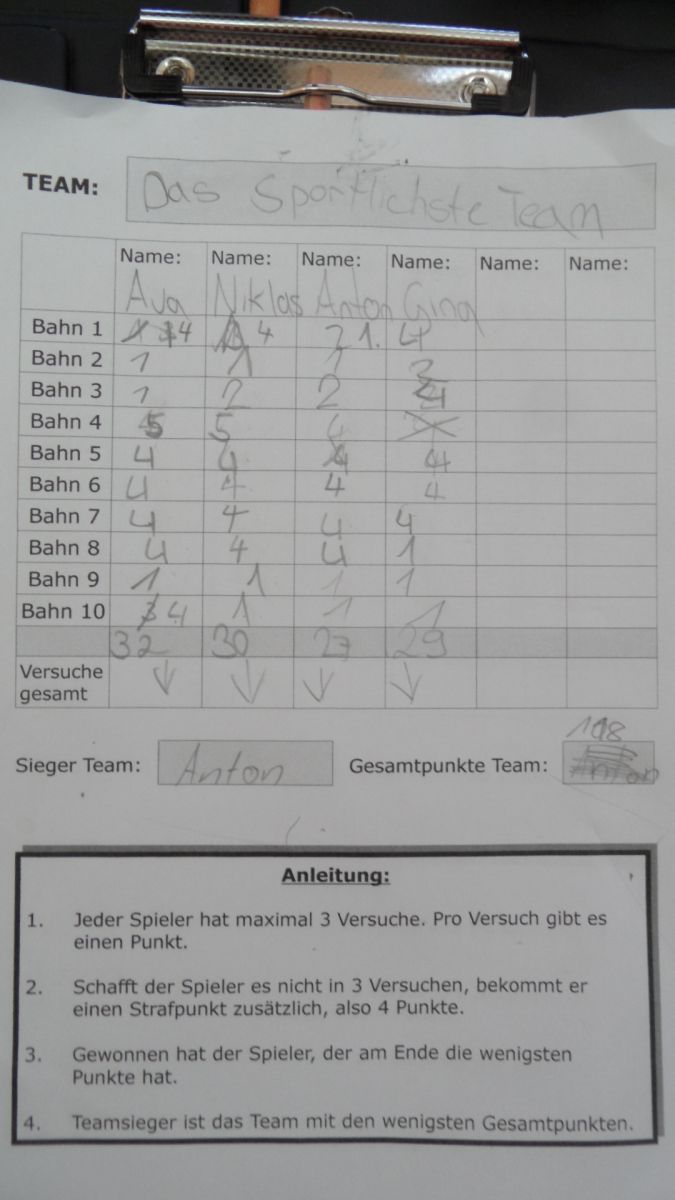 TEAM: Das Sportlichste Team
Name: Name: Name: Name: Name: Name:
Ava Niklas Anton Gina
Bahn 1 4 4 1. 4
Bahn 2 1 1 1 3
Bahn 3 1 2 2
Bahn 4 5 5 4
Bahn 5 4 4 4 4
Bahn 6 4 4 4 4
Bahn 7 4 4 4 4
Bahn 8 4 4 4 1
Bahn 9 1 1 1 1
Bahn 10 4 1 1 1
32 30 27 29
Versuche
gesamt
118
Sieger Team: Anton Gesamtpunkte Team:
Anleitung:
1. Jeder Spieler hat maximal 3 Versuche. Pro Versuch gibt es
einen Punkt.
2. Schafft der Spieler es nicht in 3 Versuchen, bekommt er
einen Strafpunkt zusätzlich, also 4 Punkte.
3. Gewonnen hat der Spieler, der am Ende die wenigsten
Punkte hat.
4. Teamsieger ist das Team mit den wenigsten Gesamtpunkten.